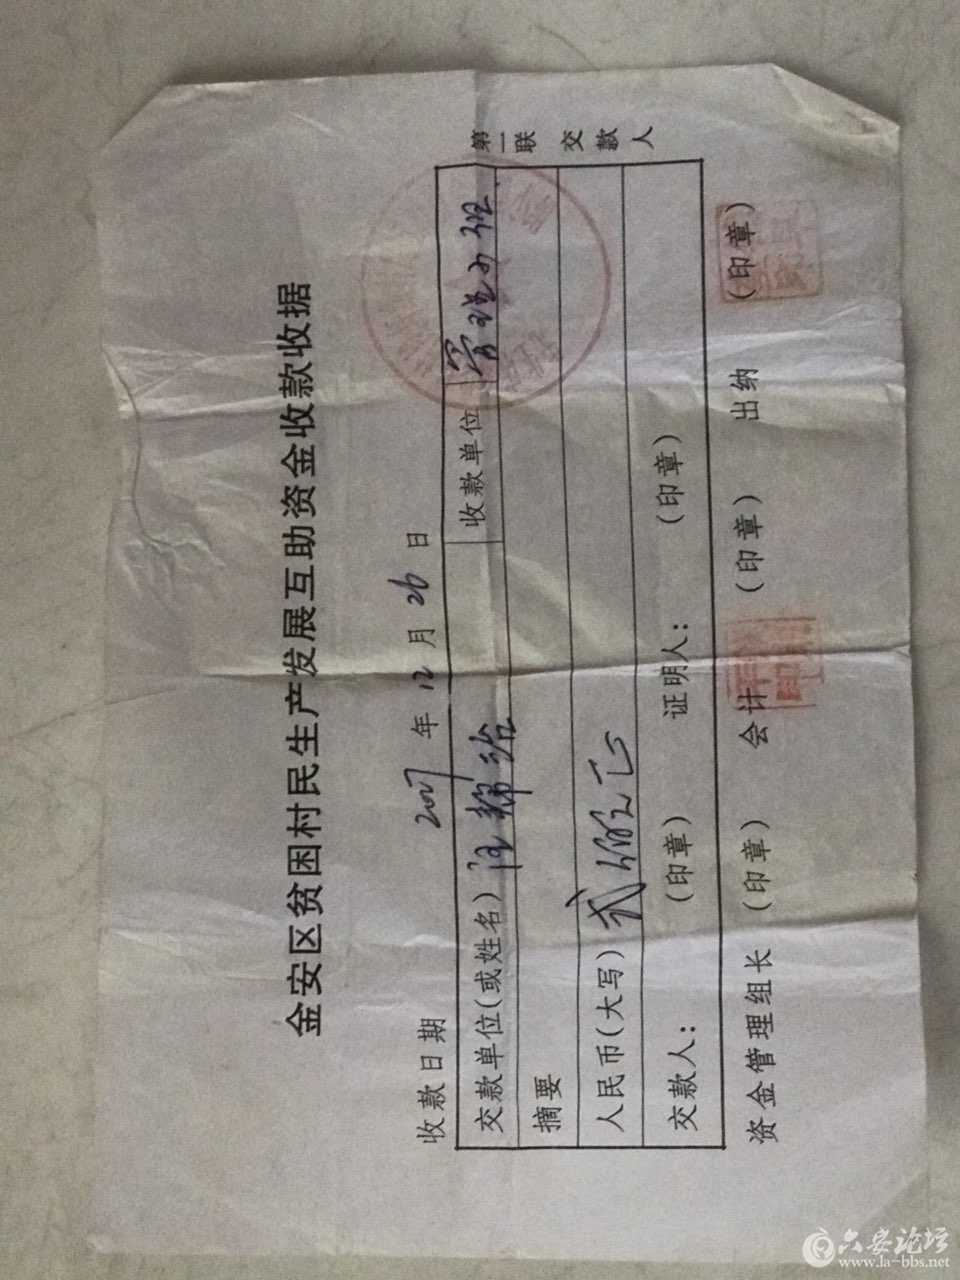 金安区贫困村民生产发展互助资金收款收据
收款日期 2007年12月26日
第一联 交款人
交款单位(或姓名) 收款单位 管理小组
摘要
人民币(大写) 贰佰元
交款人: (印章) 证明人: (印章)
资金管理组长 (印章) 会计 (印章) 出纳 (印章)
六安论坛
www.la-bbs.net